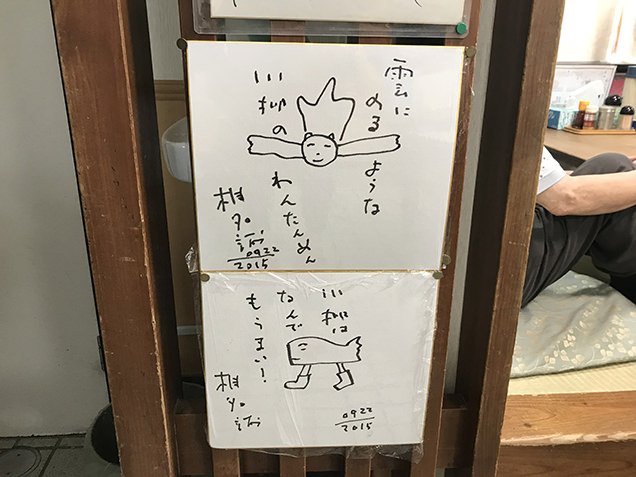 雲に
のるような
川柳の
わんたんめん
0922
2015
川柳は
なんで
もうまい!
0922
2015